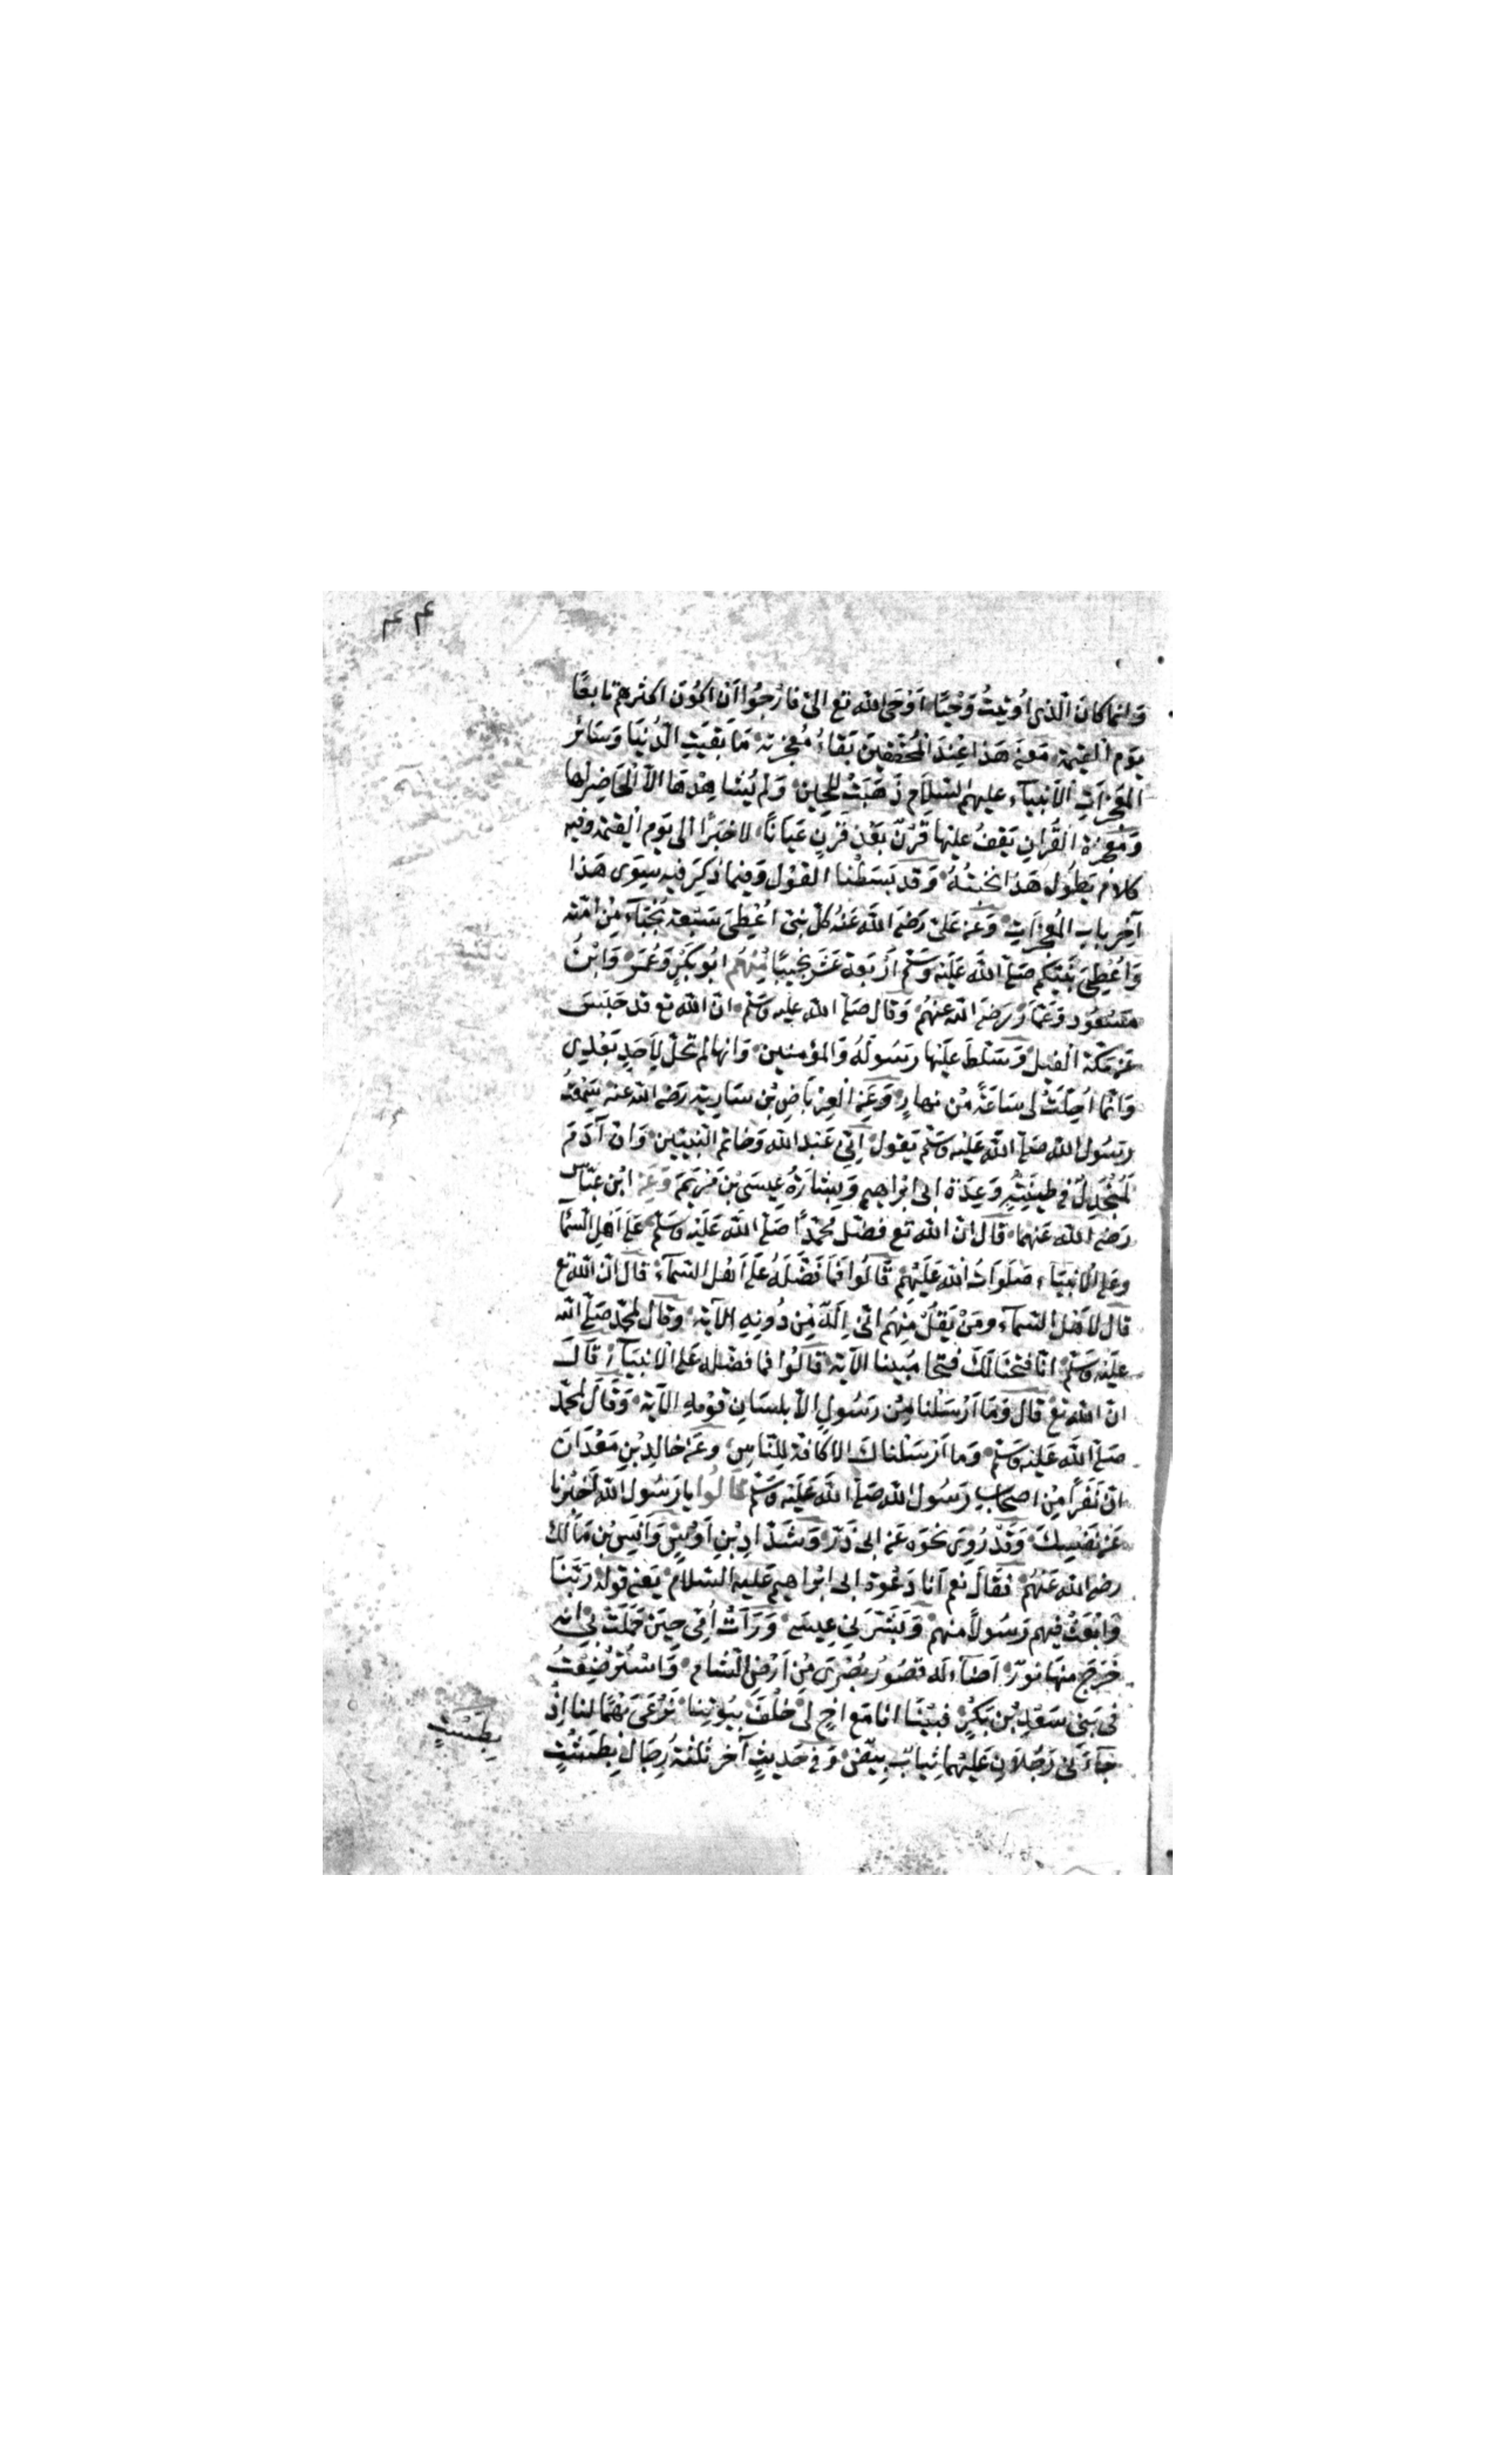 ٤٤
وَانما كانَ الّذى اُوتيتُ وَحْيًا اَوْحَى الله تع الىّ فارْجُوا اَنْ اكُونَ اكثرهم تابعًا
يَوم القيٰمة مَعنَى هَذا عِندَ المُحققينَ بَقاءُ مُعجزته مَا بَقيَتِ الدُّنيَا وَسَائر
المعجزاتِ الأنبيآء عليهم السّلام ذَهَبَتْ لِلحِين وَلم يُشاهِدْهَا الاّ الحَاضِر لها
وَمُعجزة القُرآنِ يَقفُ عليْها قَرْنٌ بَعْدَ قَرْنٍ عَيَانًا لا خبَرًا الى يَوم القيٰمة وفيه
كلامٌ يَطُول هَذا نخبَتُهُ وَقد بَسَطْنا القَوْل وَفيما ذكِرَ فيه سِوَى هَذا
آخِر بابِ المُعجزاتِ وَعن عَلىّ رَضىَ اللهَ عَنهُ كلّ نبى اُعْطِىَ سَبْعة نُجَبآء مِنْ امّته
وَاُعْطِىَ نَبيّكم صَلّى اللهَ عَليْه وسَلّم اَرْبَعة عَشَرَ نجيبًا مِنْهُمْ ابُو بَكرٍ وَعُمَر وَابْنُ
مَسْعُودٍ وَعَمّار رَضىَ الله عنهُمْ وَقال صَلّى الله عليه وسَلّم انّ الله تع قد حَبَسَ
عَن مَكّة الفيل وَسَلّطَ عليْها رَسُولَهُ وَالمؤمنين وَانها لم تحلّ لأحَدٍ بَعْدِى
وَانما اُحِلّتْ لى سَاعَةً مِنْ نهارٍ وَعَن العِرْبَاضِ بْن سَاريَة رَضىَ الله عنه سَمِعْتُ
رَسُول الله صَلّى اللهَ عَليْه وسَلّم يَقول اِنّى عَبد الله وَخاتم النّبيّين وَانّ آدَمَ
لَمُنْجَدِلٌ فى طِينَتِهِ وَعِدَة ابى ابْراهيم وَبِشارَةُ عيسَى بْن مَرْيَمَ وَعَن ابْن عبّاس
رَضىَ الله عَنهما قال انّ الله تع فضّل محمّدًا صَلّى الله عَليْه وسَلّم عَلى اَهْلِ السّمآ
وعلى الأنبيَآء صَلَوَاتُ الله عَلَيْهِم قَالُوا فَمَا فَضْلُهُ عَلى اَهْل السّمآء قال انّ الله تع
قال لأهْل السّمآء ومَنْ يَقُلْ مِنْهُم اِنّى اِلٰهٌ مِن دُونِهِ الآية وَقال لمحمّد صَلّى الله
عَليْه وسَلّم انّا فتَحْنا لَكَ فتحًا مُبينا الآية قالُوا فما فضْلهُ عَلى الأنبيَآء قالَ
انّ الله تع قال وَمَا اَرْسَلْنا مِنْ رَسُولٍ الاّ بلسَان قوْمه الآية وَقَال لمحمّد
صَلّى الله عَليْه وسَلّم وَما اَرْسَلْناكَ الا كافة لِلنّاسِ وعَن خالِدِ بْن مَعْدَانَ
انّ نَفَرًا مِنْ اصحاب رَسُول الله صَلّى الله عَليْه وسَلّم قَالُوا يا رَسُولَ الله اَخْبِرْنا
عَن نَفْسِكَ وَقَدْ رُوِىَ نَحْوَه عَن ابى ذَرّ وَشَدّادِ بْنِ اَوْسٍ وَاَنَسِ بْن مَالك
رضىَ الله عَنهُمْ فقَالَ نَعم اَنا دَعْوَة ابى ابْراهيم عَليه السّلام يَعنى قوله رَبّنَا
وَابْعَثْ فيهم رَسُولاً منهم وَبَشّرَ بى عِيسَى وَرَاَتْ اُمّى حِينَ حَمَلَتْ بى انه
خَرَجَ منهَا نورٌ اَضآء له قصُورُ بُصْرَى مِنْ اَرْضِ الشام وَاسْتُرْضِعْتُ
فى بَنى سَعْدِ بْن بَكْرٍ فبَيْنَا انا مَع اَخٍ لى خَلْفَ بيُوتِنا نَرْعَى بَهْمًا لنا اِذْ
جَآءَنى رَجُلاَن عَليْهما ثيابٌ بيضٌ وَفى حَديثٍ آخَر ثلثة رِجَالٍ بِطَسْتٍ
بِطَسْتٍ